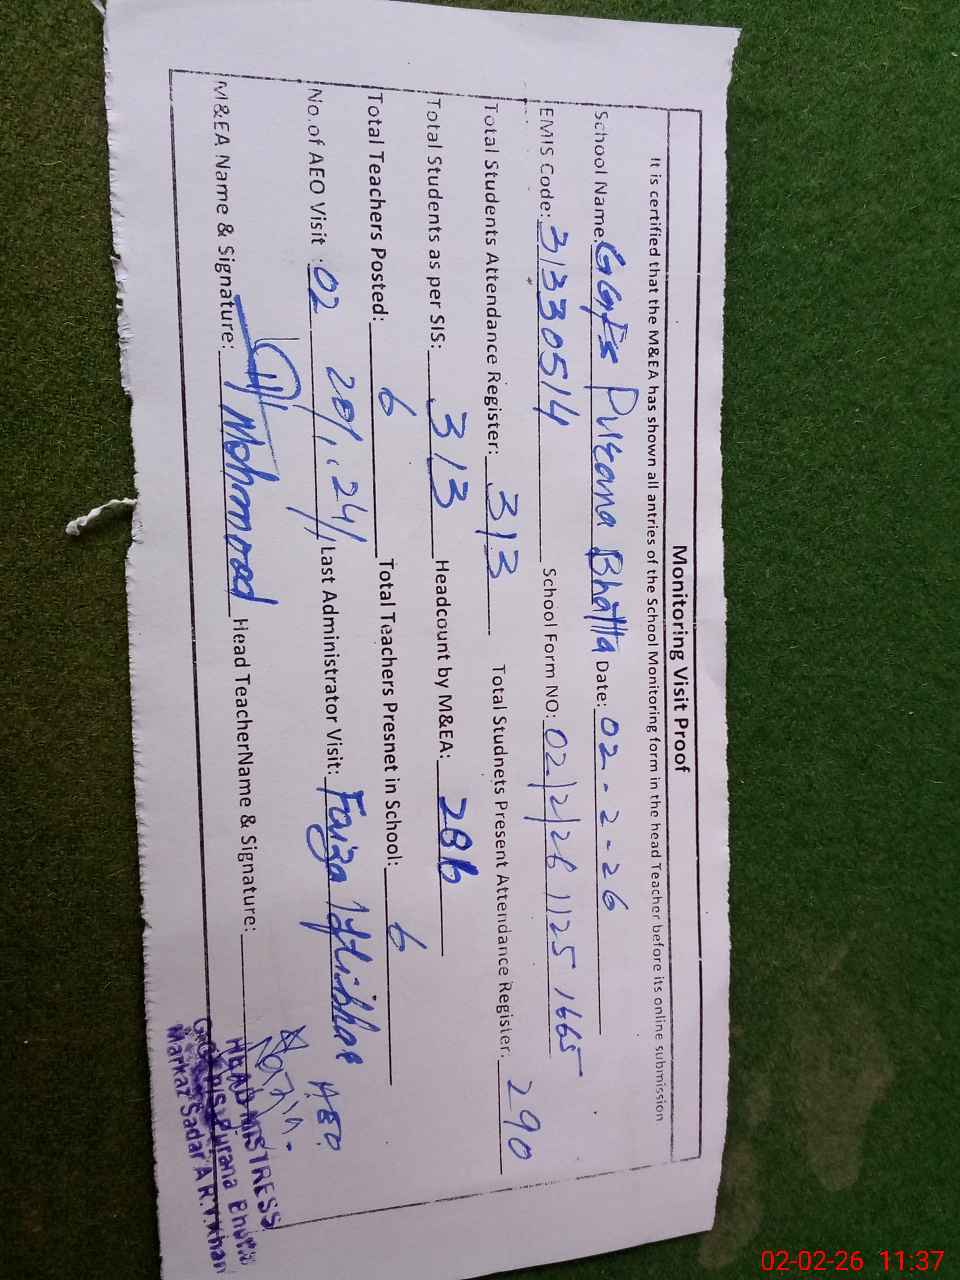 Monitoring Visit Proof
It is certified that the M&EA has shown all antries of the School Monitoring form in the head Teacher before its online submission
School Name: GGPS Purana Bhatta Date: 02-2-26
EMIS Code: 31330514 School Form NO: 02/2/26 1125 1665
Total Students Attendance Register: 313 Total Studnets Present Attendance Register: 290
Total Students as per SIS: 313 Headcount by M&EA: 286
Total Teachers Posted: 6 Total Teachers Presnet in School: 6
No.of AEO Visit : 02 Last Administrator Visit: Faiza Iftikhar AEO
M&EA Name & Signature: Mohmmad Head TeacherName & Signature:
HEAD MISTRESS
Purana Bhutta
Markaz Sadar A R.Y.Khan
02-02-26 11:37